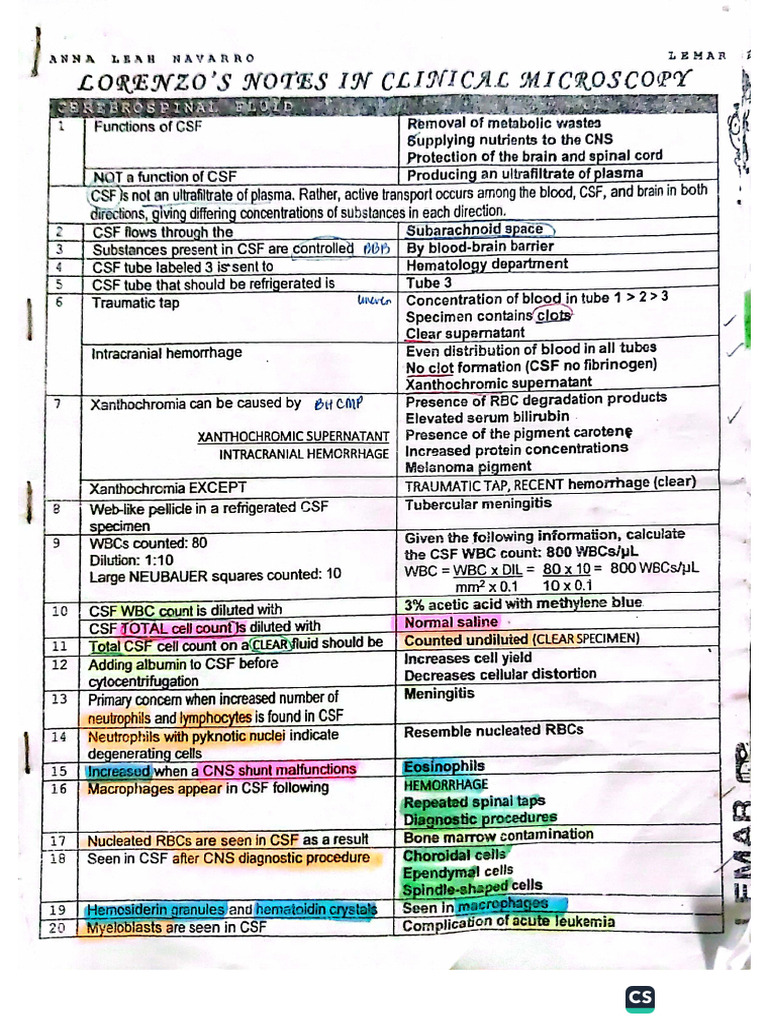 ANNA LEAH NAVARRO LEMAR
LORENZO'S NOTES IN CLINICAL MICROSCOPY
CEREBROSPINAL FLUID
1 Functions of CSF Removal of metabolic wastes
Supplying nutrients to the CNS
Protection of the brain and spinal cord
NOT a function of CSF Producing an ultrafiltrate of plasma
CSF is not an ultrafiltrate of plasma. Rather, active transport occurs among the blood, CSF, and brain in both
directions, giving differing concentrations of substances in each direction.
2 CSF flows through the Subarachnoid space
3 Substances present in CSF are controlled BBB By blood-brain barrier
4 CSF tube labeled 3 is sent to Hematology department
5 CSF tube that should be refrigerated is Tube 3
6 Traumatic tap uneven Concentration of blood in tube 1 > 2 > 3
Specimen contains clots
Clear supernatant
Intracranial hemorrhage Even distribution of blood in all tubes
No clot formation (CSF no fibrinogen)
Xanthochromic supernatant
7 Xanthochromia can be caused by BHCMP Presence of RBC degradation products
Elevated serum bilirubin
XANTHOCHROMIC SUPERNATANT Presence of the pigment carotene
INTRACRANIAL HEMORRHAGE Increased protein concentrations
Melanoma pigment
Xanthochromia EXCEPT TRAUMATIC TAP, RECENT hemorrhage (clear)
8 Web-like pellicle in a refrigerated CSF Tubercular meningitis
specimen
9 WBCs counted: 80 Given the following information, calculate
Dilution: 1:10 the CSF WBC count: 800 WBCs/µL
Large NEUBAUER squares counted: 10 WBC = WBC x DIL = 80 x 10 = 800 WBCs/µL
mm² x 0.1 10 x 0.1
10 CSF WBC count is diluted with 3% acetic acid with methylene blue
CSF TOTAL cell count is diluted with Normal saline
11 Total CSF cell count on a CLEAR fluid should be Counted undiluted (CLEAR SPECIMEN)
12 Adding albumin to CSF before Increases cell yield
cytocentrifugation Decreases cellular distortion
13 Primary concern when increased number of Meningitis
neutrophils and lymphocytes is found in CSF
14 Neutrophils with pyknotic nuclei indicate Resemble nucleated RBCs
degenerating cells
15 Increased when a CNS shunt malfunctions Eosinophils
16 Macrophages appear in CSF following HEMORRHAGE
Repeated spinal taps
Diagnostic procedures
17 Nucleated RBCs are seen in CSF as a result Bone marrow contamination
18 Seen in CSF after CNS diagnostic procedure Choroidal cells
Ependymal cells
Spindle-shaped cells
19 Hemosiderin granules and hematoidin crystals Seen in macrophages
20 Myeloblasts are seen in CSF Complication of acute leukemia
LEMAR
CS